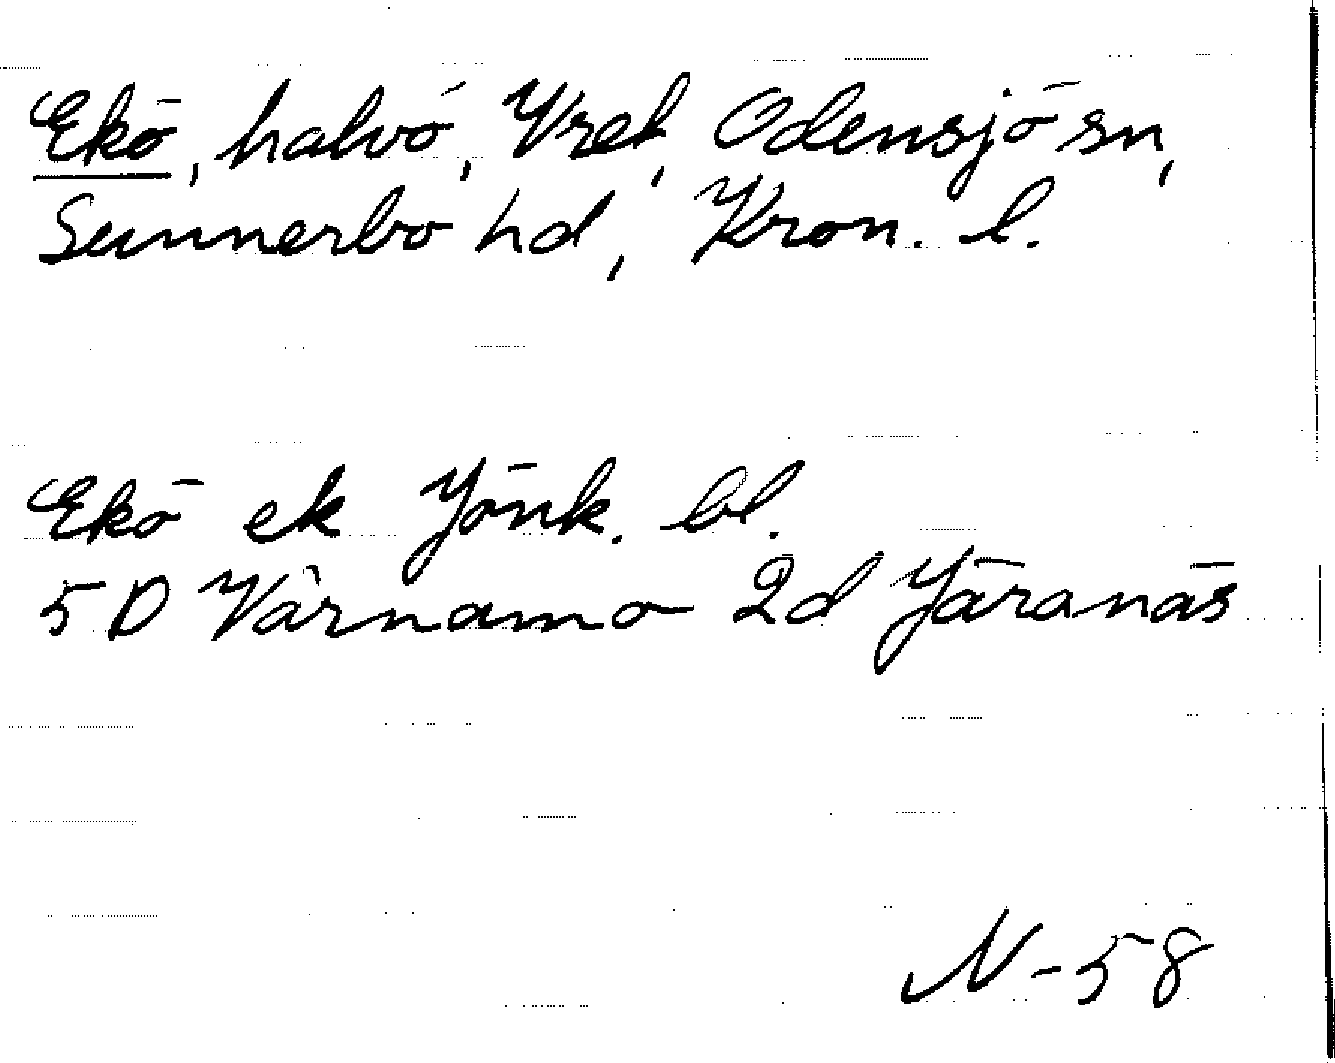 Ekö, halvö, Vret, Odensjö sn,
Sunnerbo hd, Kron. l.
Ekö ek Jönk. bl.
5D Värnamo 2d Järanäs
N-58